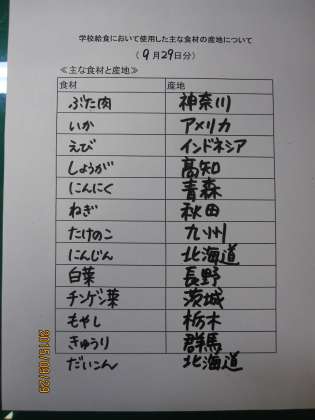 学校給食において使用した主な食材の産地について
(9月29日分)
≪主な食材と産地≫
食材 産地
ぶた肉 神奈川
いか アメリカ
えび インドネシア
しょうが 高知
にんにく 青森
ねぎ 秋田
たけのこ 九州
にんじん 北海道
白菜 長野
チンゲン菜 茨城
もやし 栃木
きゅうり 群馬
だいこん 北海道
2015/09/29